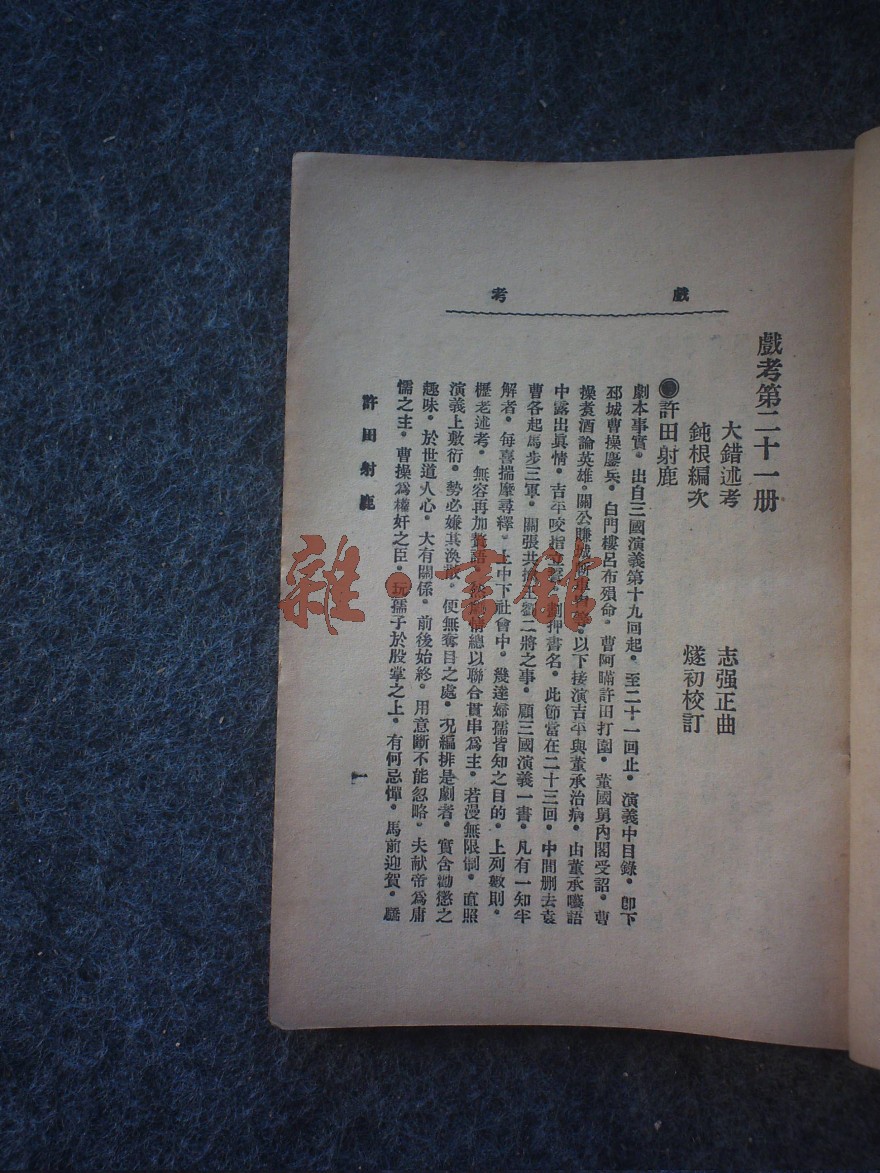 戲考
戲考第二十一册
大錯述考　志强正曲
鈍根編次　燧初校訂
●許田射鹿
劇本事實。出自三國演義第十九回起。至二十一回止。演義中目錄。卽下
邳城曹操鏖兵。白門樓呂布殞命。曹阿瞞許田打圍。董國舅內閣受詔。曹
操煑酒論英雄。關公賺城斬車胄等。以下接演吉平與董承治病。由董承囈語
中露出眞情。吉平咬指立誓。劃押書名。此節當在二十三回。中間删去袁
曹各起馬步三軍。關張共擒王劉二將之事。顧三國演義一書。凡有一知半
解者。每喜揣摩尋繹。上中下社會中。幾達婦孺皆知之目的。上列數則。
櫪老述考。無容再加贅語。然劇情總以聯合貫串爲主。若漫無限制。直照
演義上敷衍。勢必嫌其渙散。便無奪目之處。况編排是劇者。實含勸懲之
趣味。於世道人心。大有關係。前後始終。用意斷不能忽略。夫献帝爲庸
懦之主。曹操爲權奸之臣。玩孺子於股掌之上。有何忌憚。馬前迎賀。驕
許田射鹿
一
雜·書館